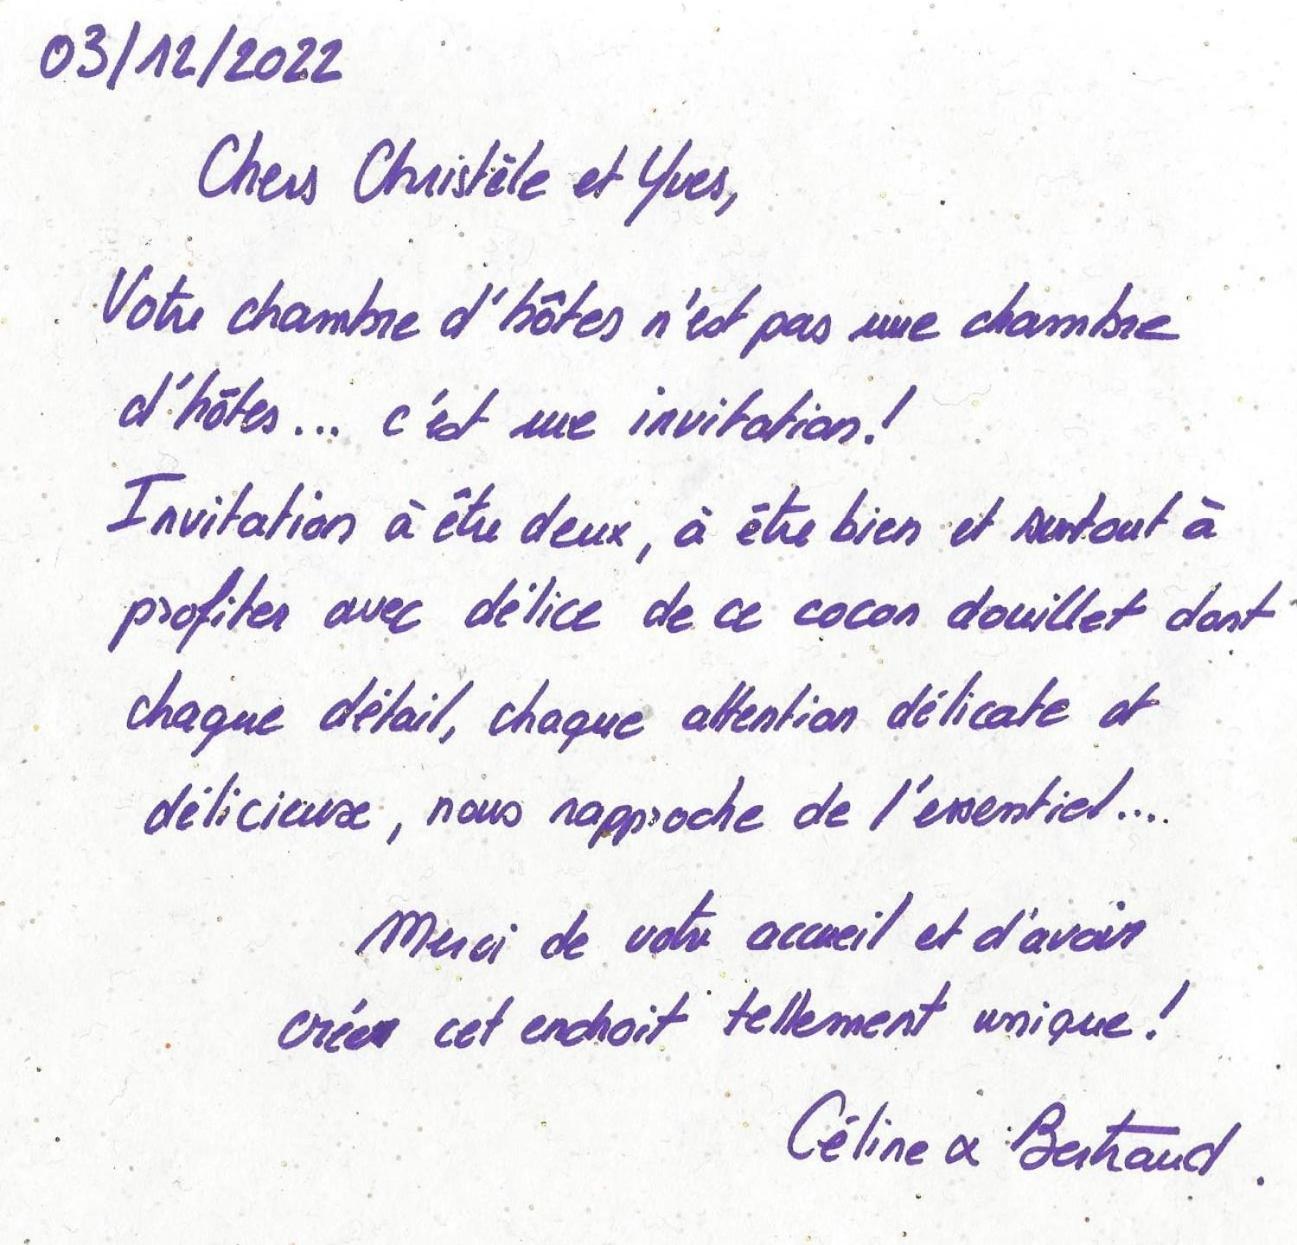 03/12/2022
Chers Christèle et Yves,
Votre chambre d'hôtes n'est pas une chambre
d'hôtes... c'est une invitation!
Invitation à être deux, à être bien et surtout à
profiter avec délice de ce cocon douillet dont
chaque détail, chaque attention délicate et
délicieuse, nous rapproche de l'essentiel....
Merci de votre accueil et d'avoir
créer cet endroit tellement unique!
Céline & Bertrand.